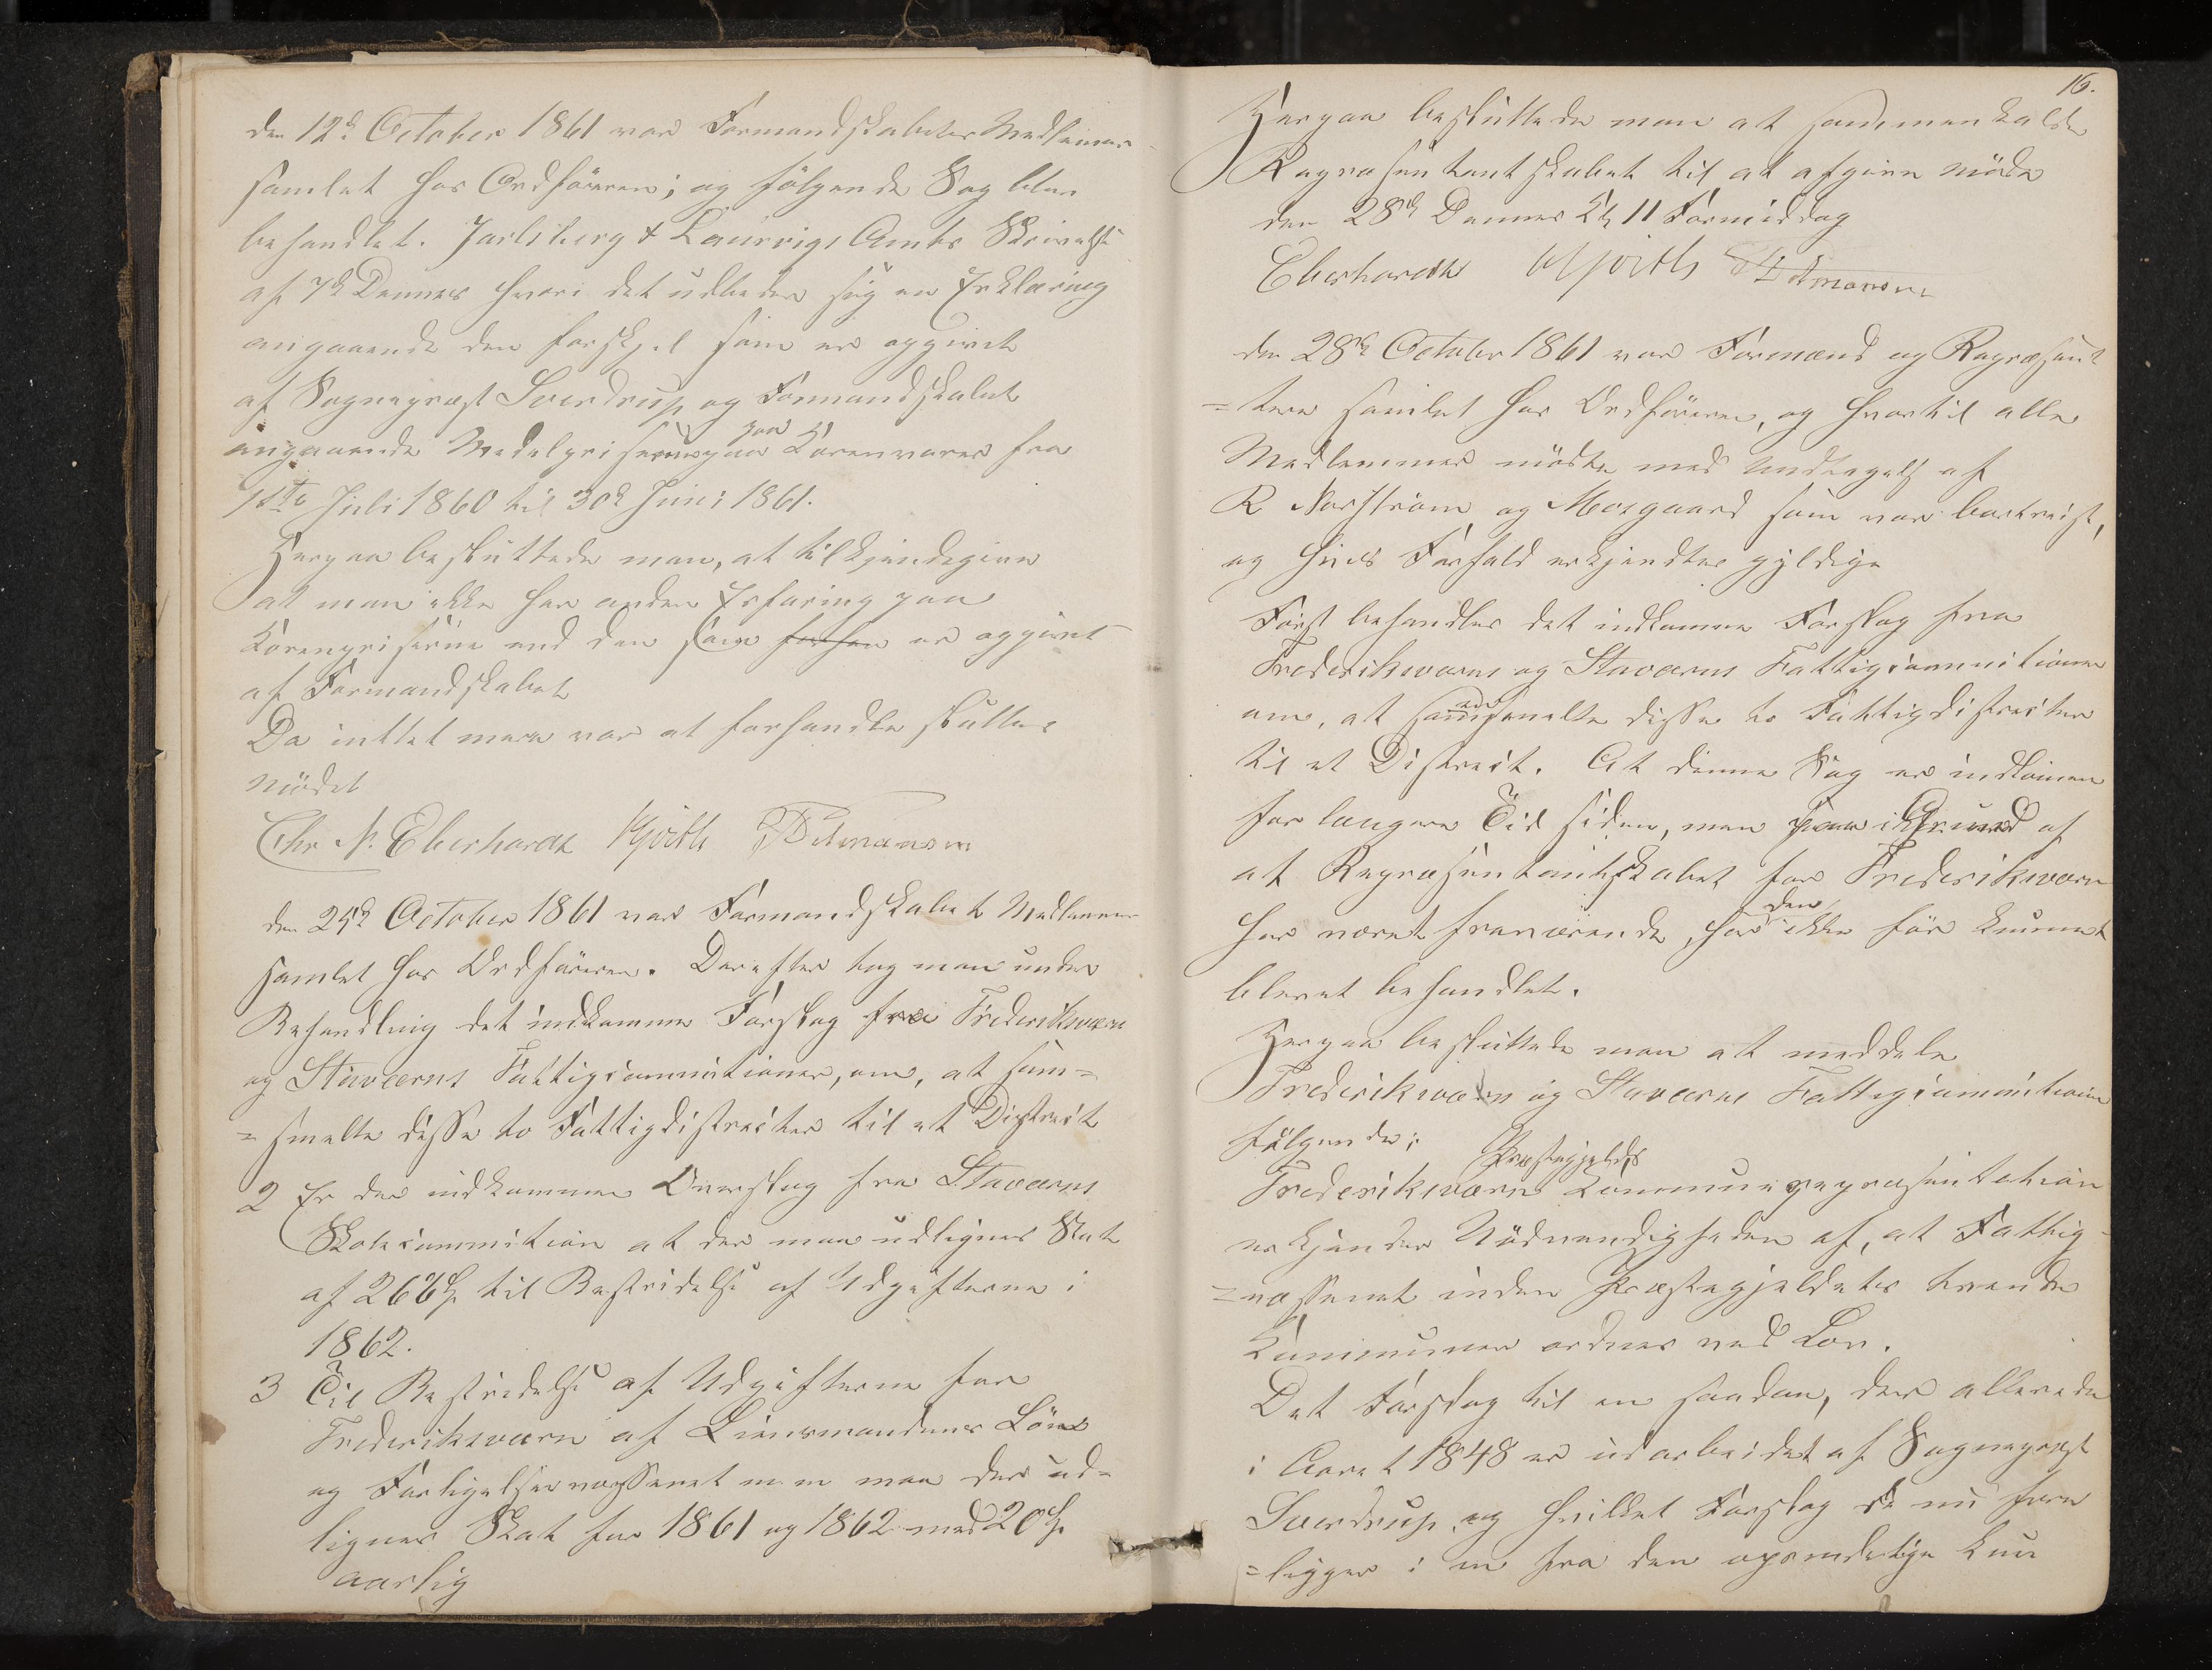 den 12d October 1861 var Formandskabets Medlemer
samlet hos Ordföreren; og følgende Sag blev
behandlet. Jarlsberg & Laurvigs Amts Skrivelse
af 7d Dennes hvori det udbeder sig en Erklæring
angaaende den forskjel som er opgivet
af Sognepræst Sverdrup og Formandskabet
angaaende Medelpriserne paa Kornvarer fra
1ste Juli 1860 til 30d Juni 1861.
Herpaa besluttede man, at tilkjendegive
at man ikke har anden Erfaring paa
Kornpriserne end den som forhen er opgivet
af Formandskabet
Da intet mere var at forhandle sluttes
mödet
Chr N. Eberhardt Hjorth Ditmansen
den 25d October 1861 var Formandskabet Medlemer
samlet hos Ordföreren. Derefter tog man under
Behandling det indkomne Forslag fra Frederiksværn
og Staværns Fattigcommitioner, om, at sam=
=smelte disse to Fattigdistrikter til et District
2 Er der indkommen Overslag fra Staværns
Skolecommition at der maa udlignes Skat
af 266 til Bestridelse af Udgifterne i
1862.
3 Til Bestridelse af Udgifterne for
Frederiksværn af Lensmandens Lön
og Forligelsesvæssenet m m maa der ud=
lignes Skat for 1861 og 1862 med 20
aarlig
16.
Herpaa besluttede man at sammenkalde
Repræsentantskabet til at afgive möde
den 28d Dennes Kl 11 Formiddag
Eberhardt Hjorth Ditmansen
den 28d October 1861 var Formænd og Repræsent
=tere samlet hos Ordföreren, og hvortil alle
Medlemmer mödte med Undtagelse af
R Norström og Moegaard som var bortreist,
og hvis Forfald erkjendtes gyldige
Först behandles det indkomne Forslag fra
Frederiksværns og Staværns Fattigcommitioner
om, at sammensmelte disse to Fattigdistricter
til et District. At denne Sag er indkommen
for længere Tid siden, men paa Grund af
at Repræsentantskabet for Frederiksværn
har været fraværende, har den ikke för kunnet
blevet behandlet.
Herpaa besluttede man at meddele
Frederiksværn og Staværns Fattigcommition
fölgende:
Frederiksværns Præstegjelds Kommunerepræsentation
erkjender Nödvendigheden af, at Fattig=
=væssenet inden Præstegjeldets tvende
Kommuner ordnes ved Lov.
Det Forslag til en saadan, der allerede
i Aaret 1848 er udarbeidet af Sognepræst
Sverdrup, og hvilket Forslag nu fore
=ligger i en fra den oprindelige kun